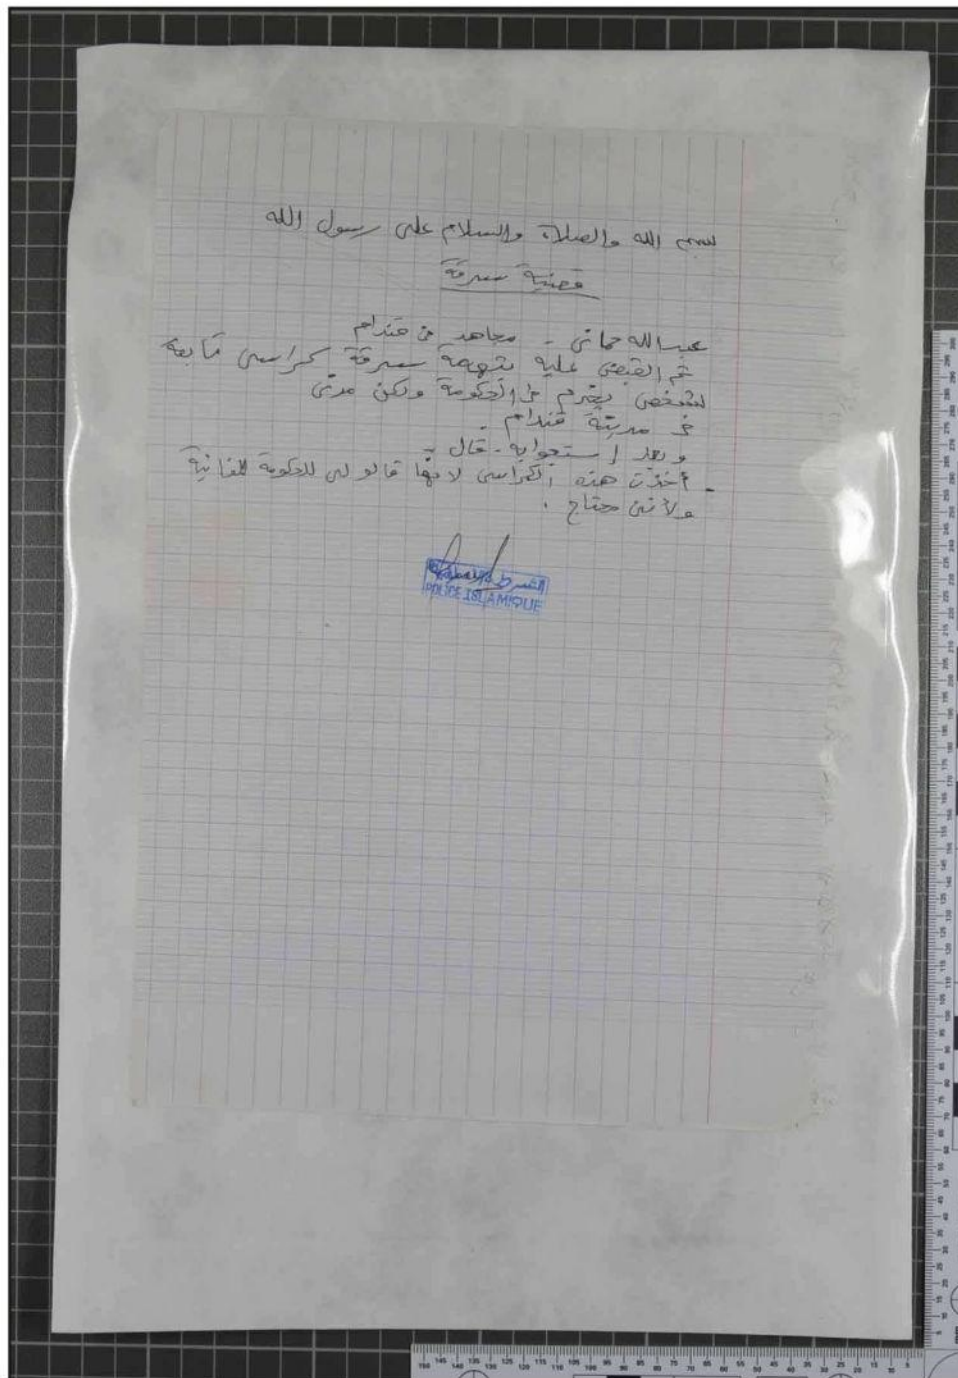 بسم الله والصلاة والسلام على رسول الله
قضية سرقة
عبد الله حماني - مجاهد من قندام
تم القبض عليه بتهمة سرقة كراسي تابعة
لشخص يخدم في الحكومة ولكن مدني
في مدينة قندام.
وبعد إستجوابه - قال :
- أخذت هذه الكراسي لانها قالو لي للحكومة المالية
ولأنني محتاج .
الشرطة الإسلامية
POLICE ISLAMIQUE